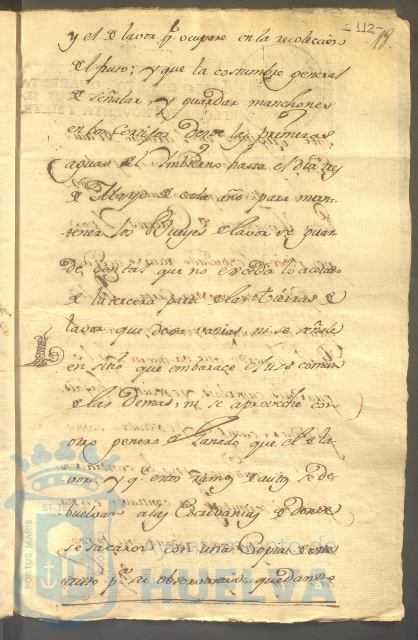 112
y el de lavor q.e ocupare en la recoleccion
del fruto; y que la costumbre general
de señalar, y guardar manchones
en los Cortijos desde las primeras
aguas del Imbierno hasta el dia tres
de Mayo de cada año para man-
tener los Bueyes de lavor se guar-
de, con tal que no exceda lo acotado
de la tercera parte de las tierras de
lavor que deva varias, ni se señale
en sitio que embarace el uso comun
de las demas, ni se aproveche con
otro genero de Ganado que el de la-
vor, y q.e estos ramos de autos se de-
buelvan a las Escrivanias de donde
se sacaron con una Copia de este
auto p.a su observancia, quedando
Ayuntamiento de
HUELVA
PORTUS MARIS